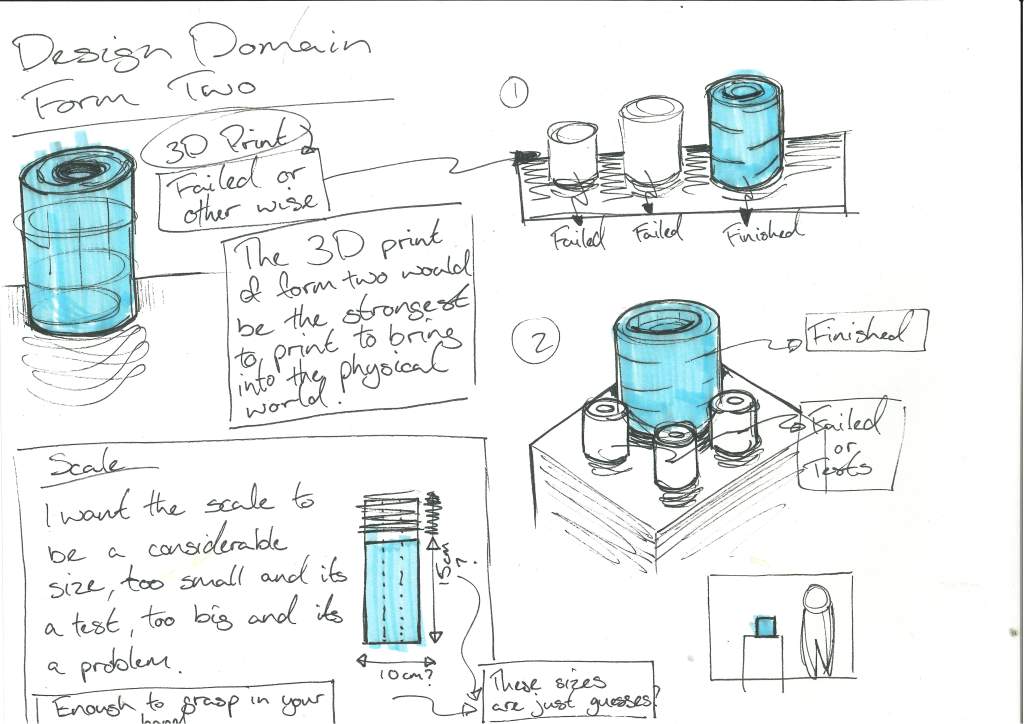 Design Domain
Form Two
3D Print
Failed or
other wise
The 3D print
of form two would
be the strongest
to print to bring
into the physical
world.
1
Failed
Failed
Finished
2
Finished
Failed
or
Tests
Scale
I want the scale to
be a considerable
size, too small and its
a test, too big and its
a problem.
15cm
?
10cm?
Enough to grasp in your
hand
These sizes
are just guesses?